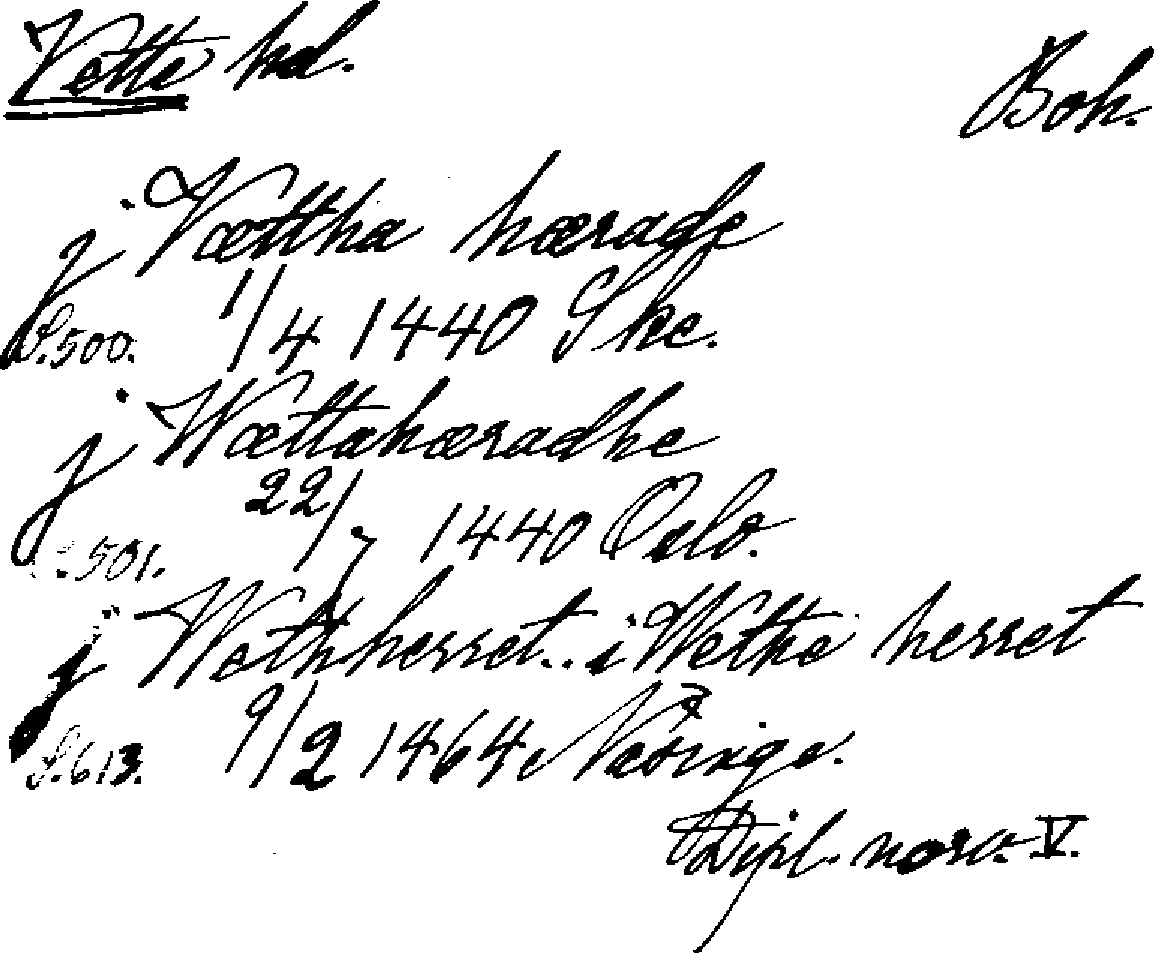 Vette hd. Boh.
j Vættha hærade
S. 500. 1/4 1440 Ske.
j Wættahæradhe
S. 501. 22/7 1440 Oslo.
j Wethherret.. i Wethe herret
S. 613. 9/2 1464
Dipl. norv. V.